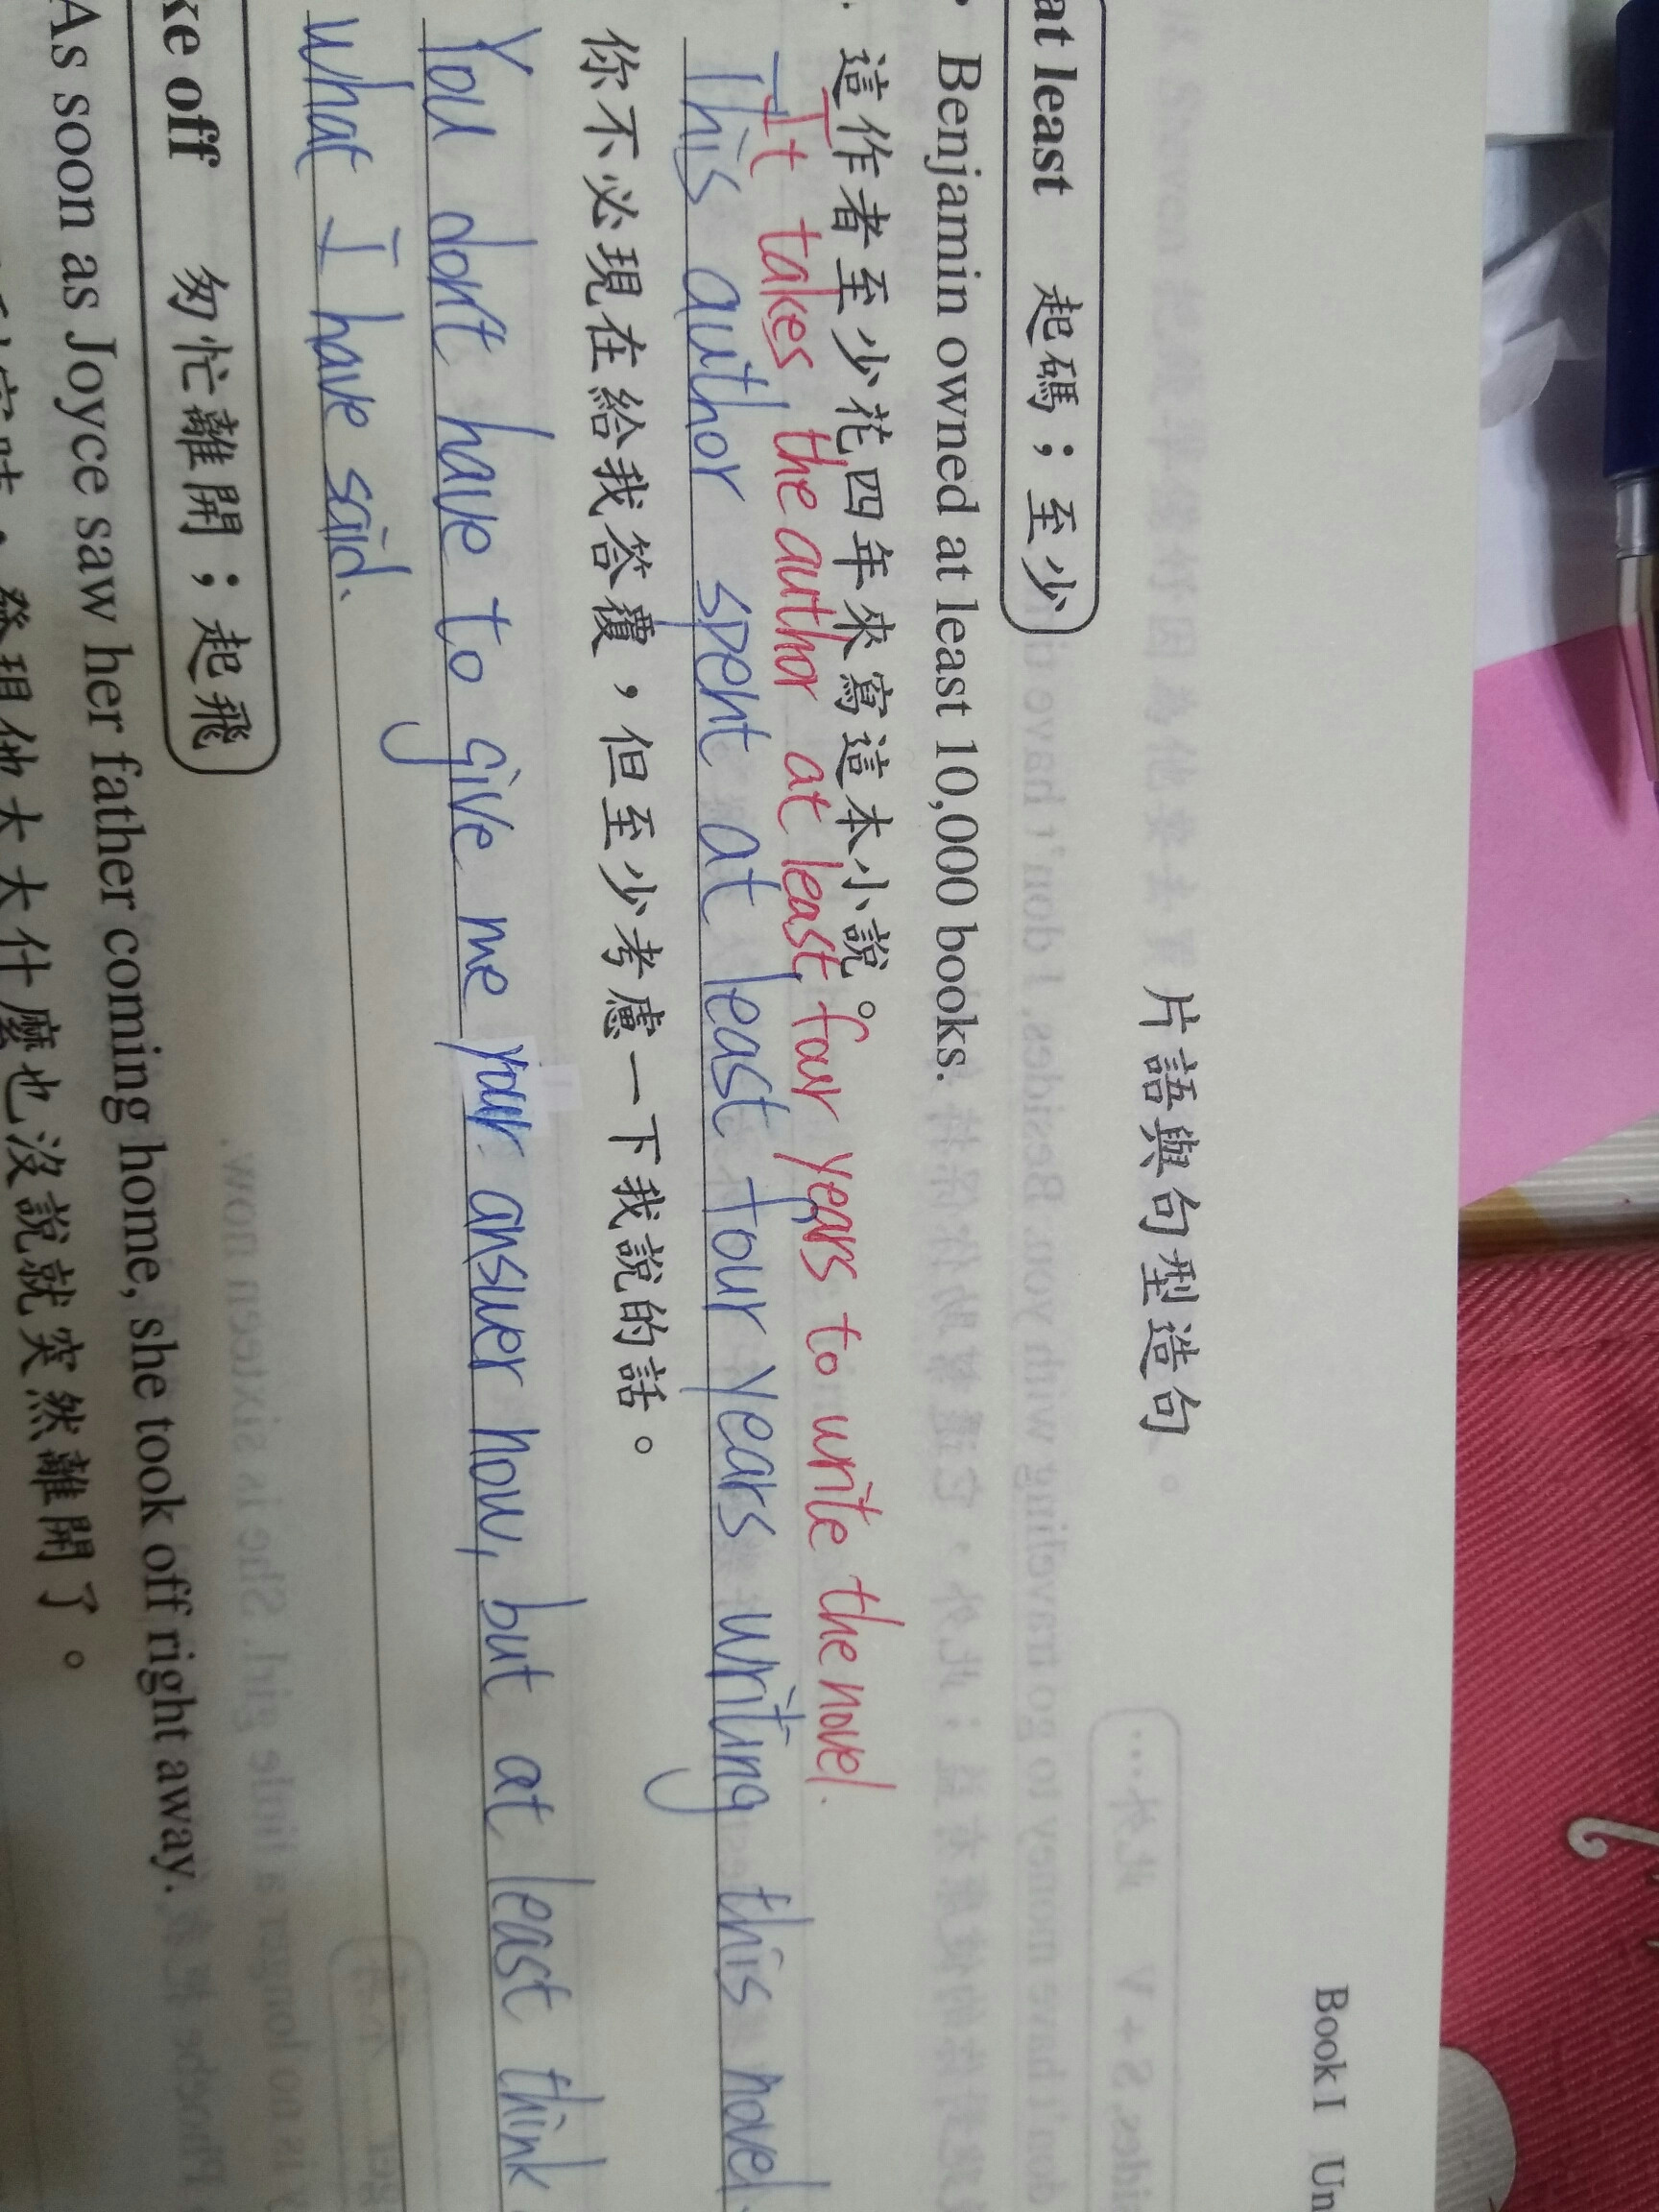 Book I Un
片語與句型造句
at least 起碼；至少
Benjamin owned at least 10,000 books.
這作者至少花四年來寫這本小說。
It takes the author at least four years to write the novel.
This author spent at least four years writing this novel.
你不必現在給我答覆，但至少考慮一下我說的話。
You don't have to give me your answer now, but at least think
what I have said.
ke off 匆忙離開；起飛
As soon as Joyce saw her father coming home, she took off right away.
發現他太太什麼也沒說就突然離開了。